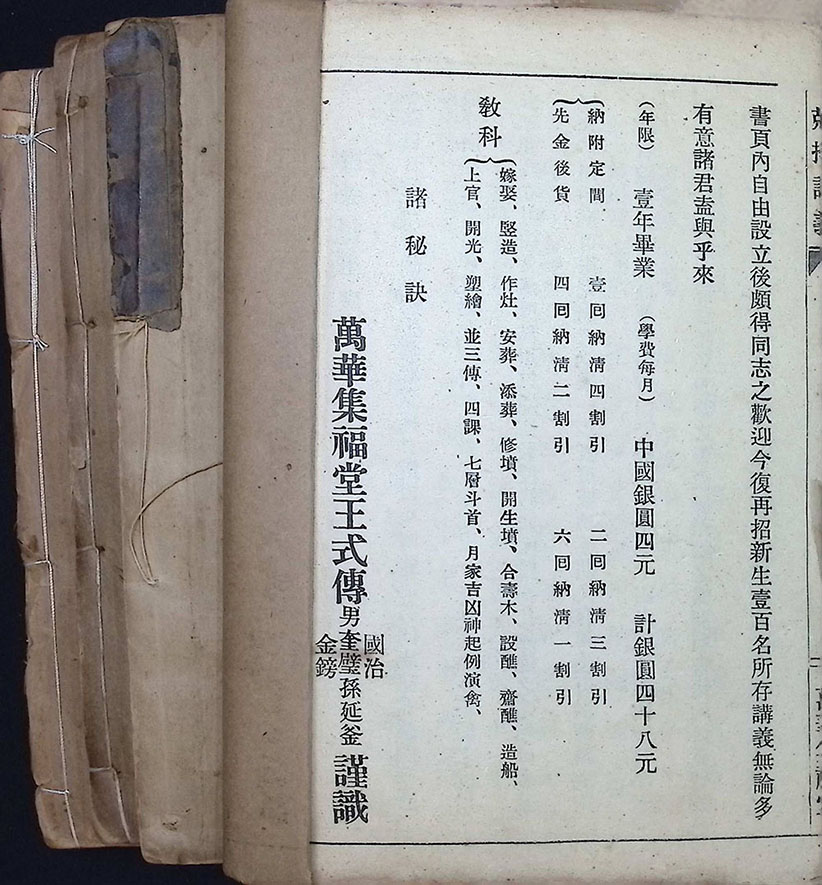 書頁內自由設立後頗得同志之歡迎今復再招新生壹百名所存講義無論多
有意諸君盍與乎來
(年限) 壹年畢業 (學費每月) 中國銀圓四元 計銀圓四十八元
納附定間 壹囘納淸四割引 二囘納淸三割引
先金後貨 四囘納淸二割引 六囘納淸一割引
敎科
嫁娶、竪造、作灶、安葬、添葬、修墳、開生墳、合壽木、設醮、齋醮、造船、
上官、開光、塑繪、並三傳、四課、七層斗首、月家吉凶神起例演禽、
諸秘訣
萬華集福堂王式傳男奎璧孫延釜 謹識
國治
金鎊